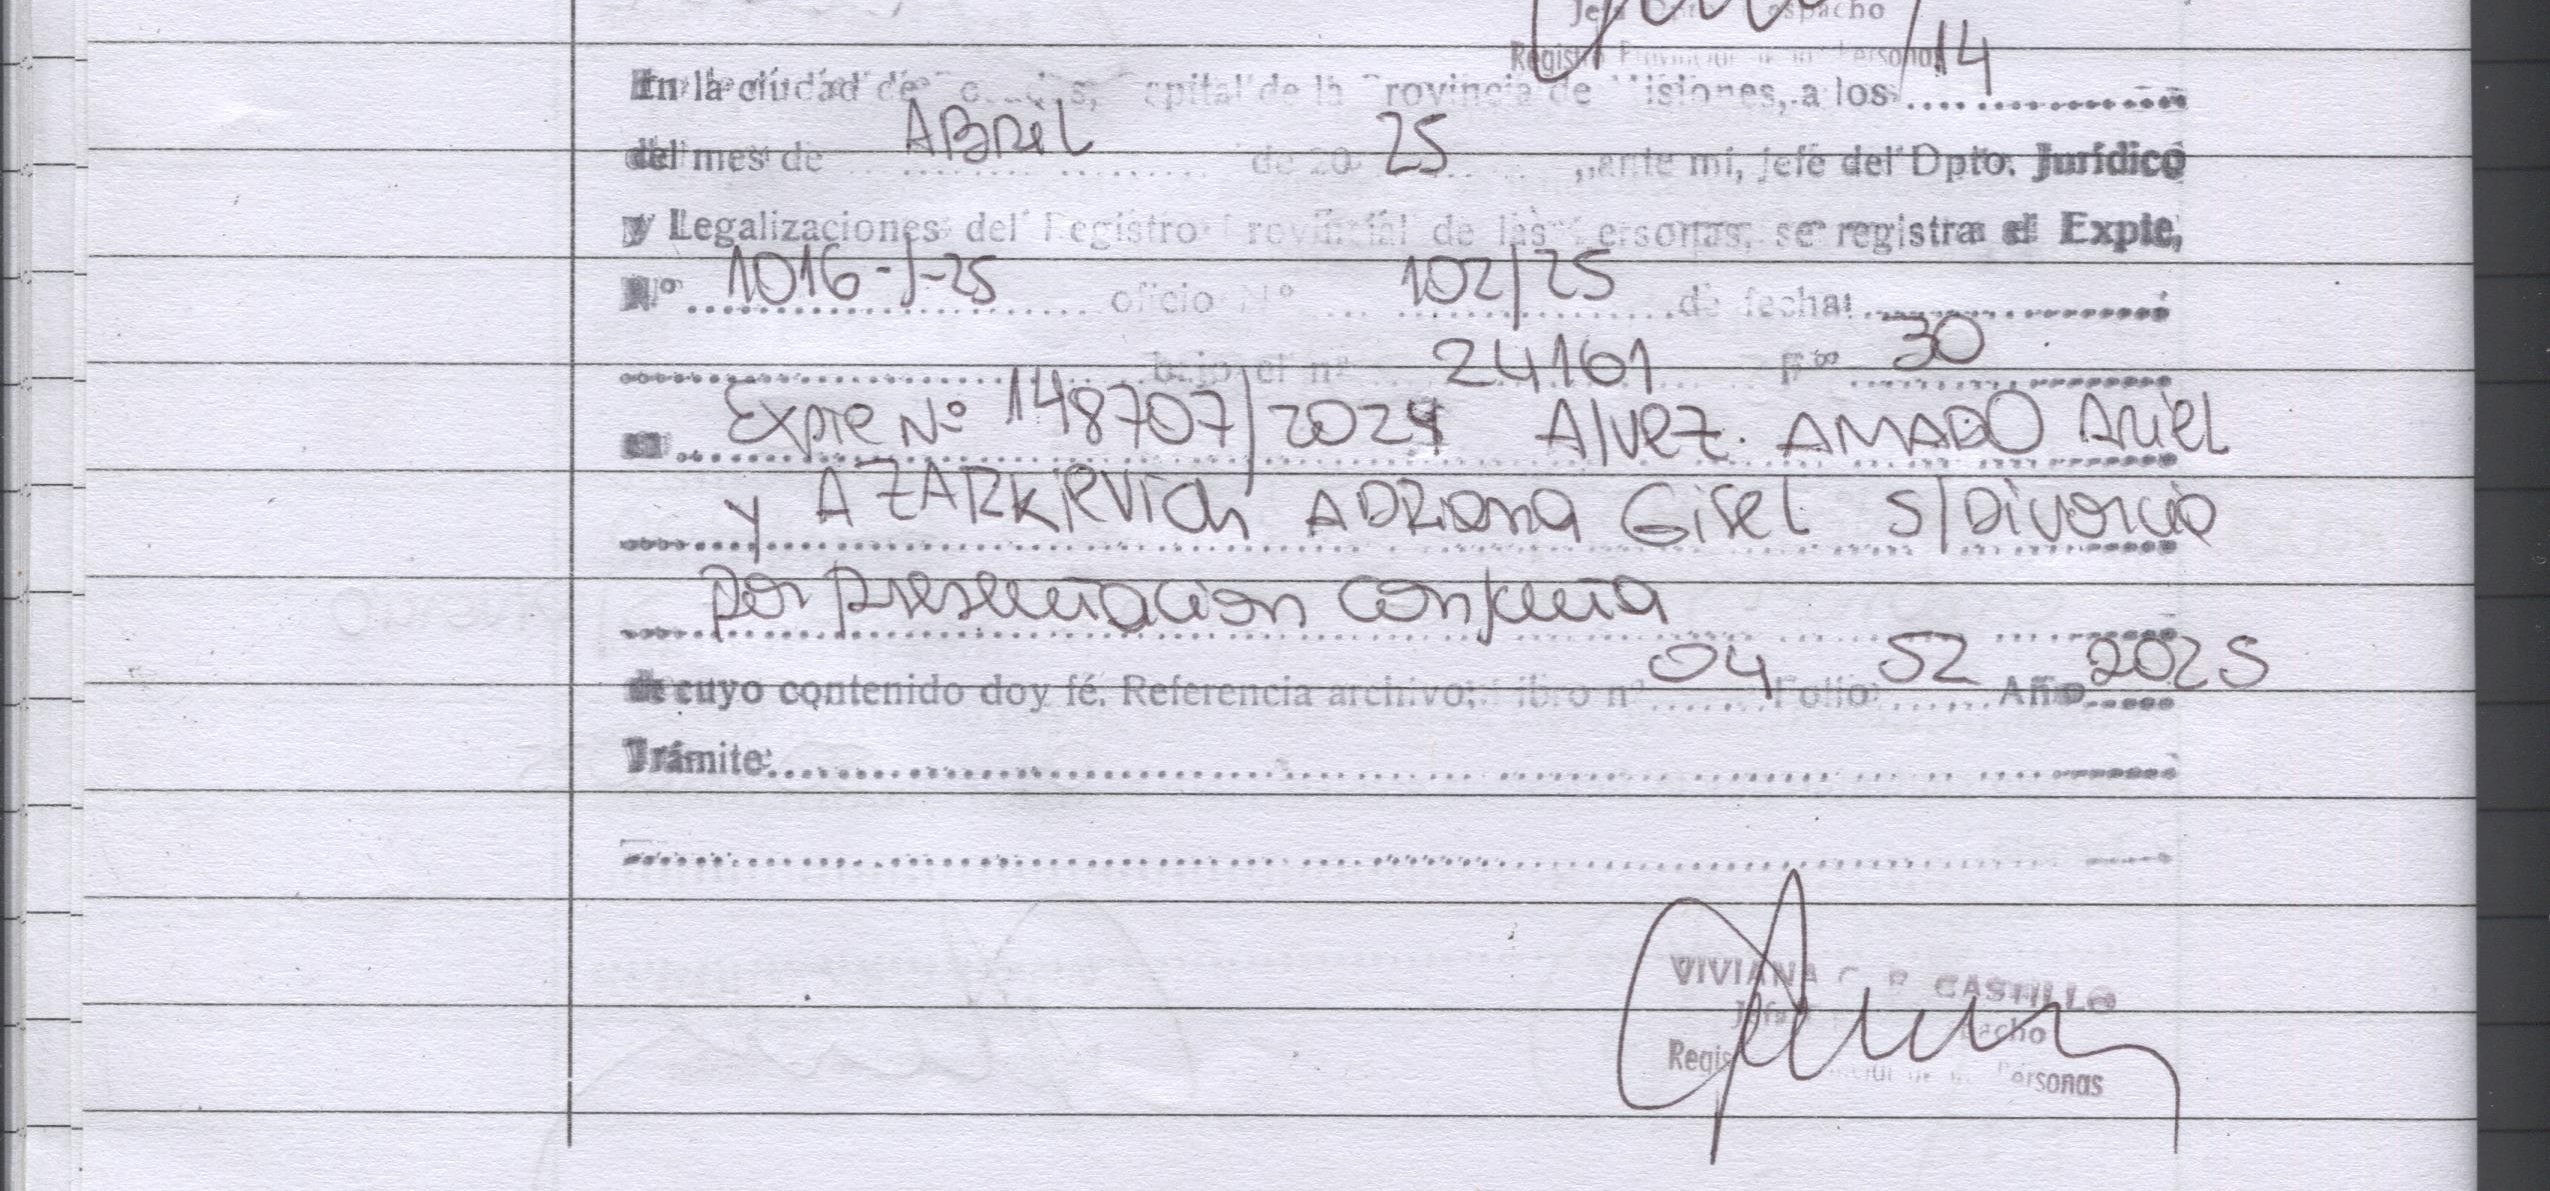 Jefa Dpto. Despacho
Registro Provincial de las Personas
En la ciudad de Posadas, Capital de la Provincia de Misiones, a los 14
del mes de ABRIL de 20 25, ante mi, jefe del Dpto. Jurídico
y Legalizaciones del Registro Provincial de las Personas, se registra el Expte,
Nº 1016-J-25 oficio Nº 102/25 de fecha:
bajo el nº 24161 Fº 30
en Expte Nº 148707/2024 Alvez. AMADO Ariel
y AZARKIEVICh ADRIANA Gisel s/Divorcio
por presentacion conjunta
de cuyo contenido doy fé. Referencia archivo; Libro nº 04 Folio 52 Año 2025
Trámite:
VIVIANA CASTILLO
Jefa Despacho
Registro Provincial de las Personas